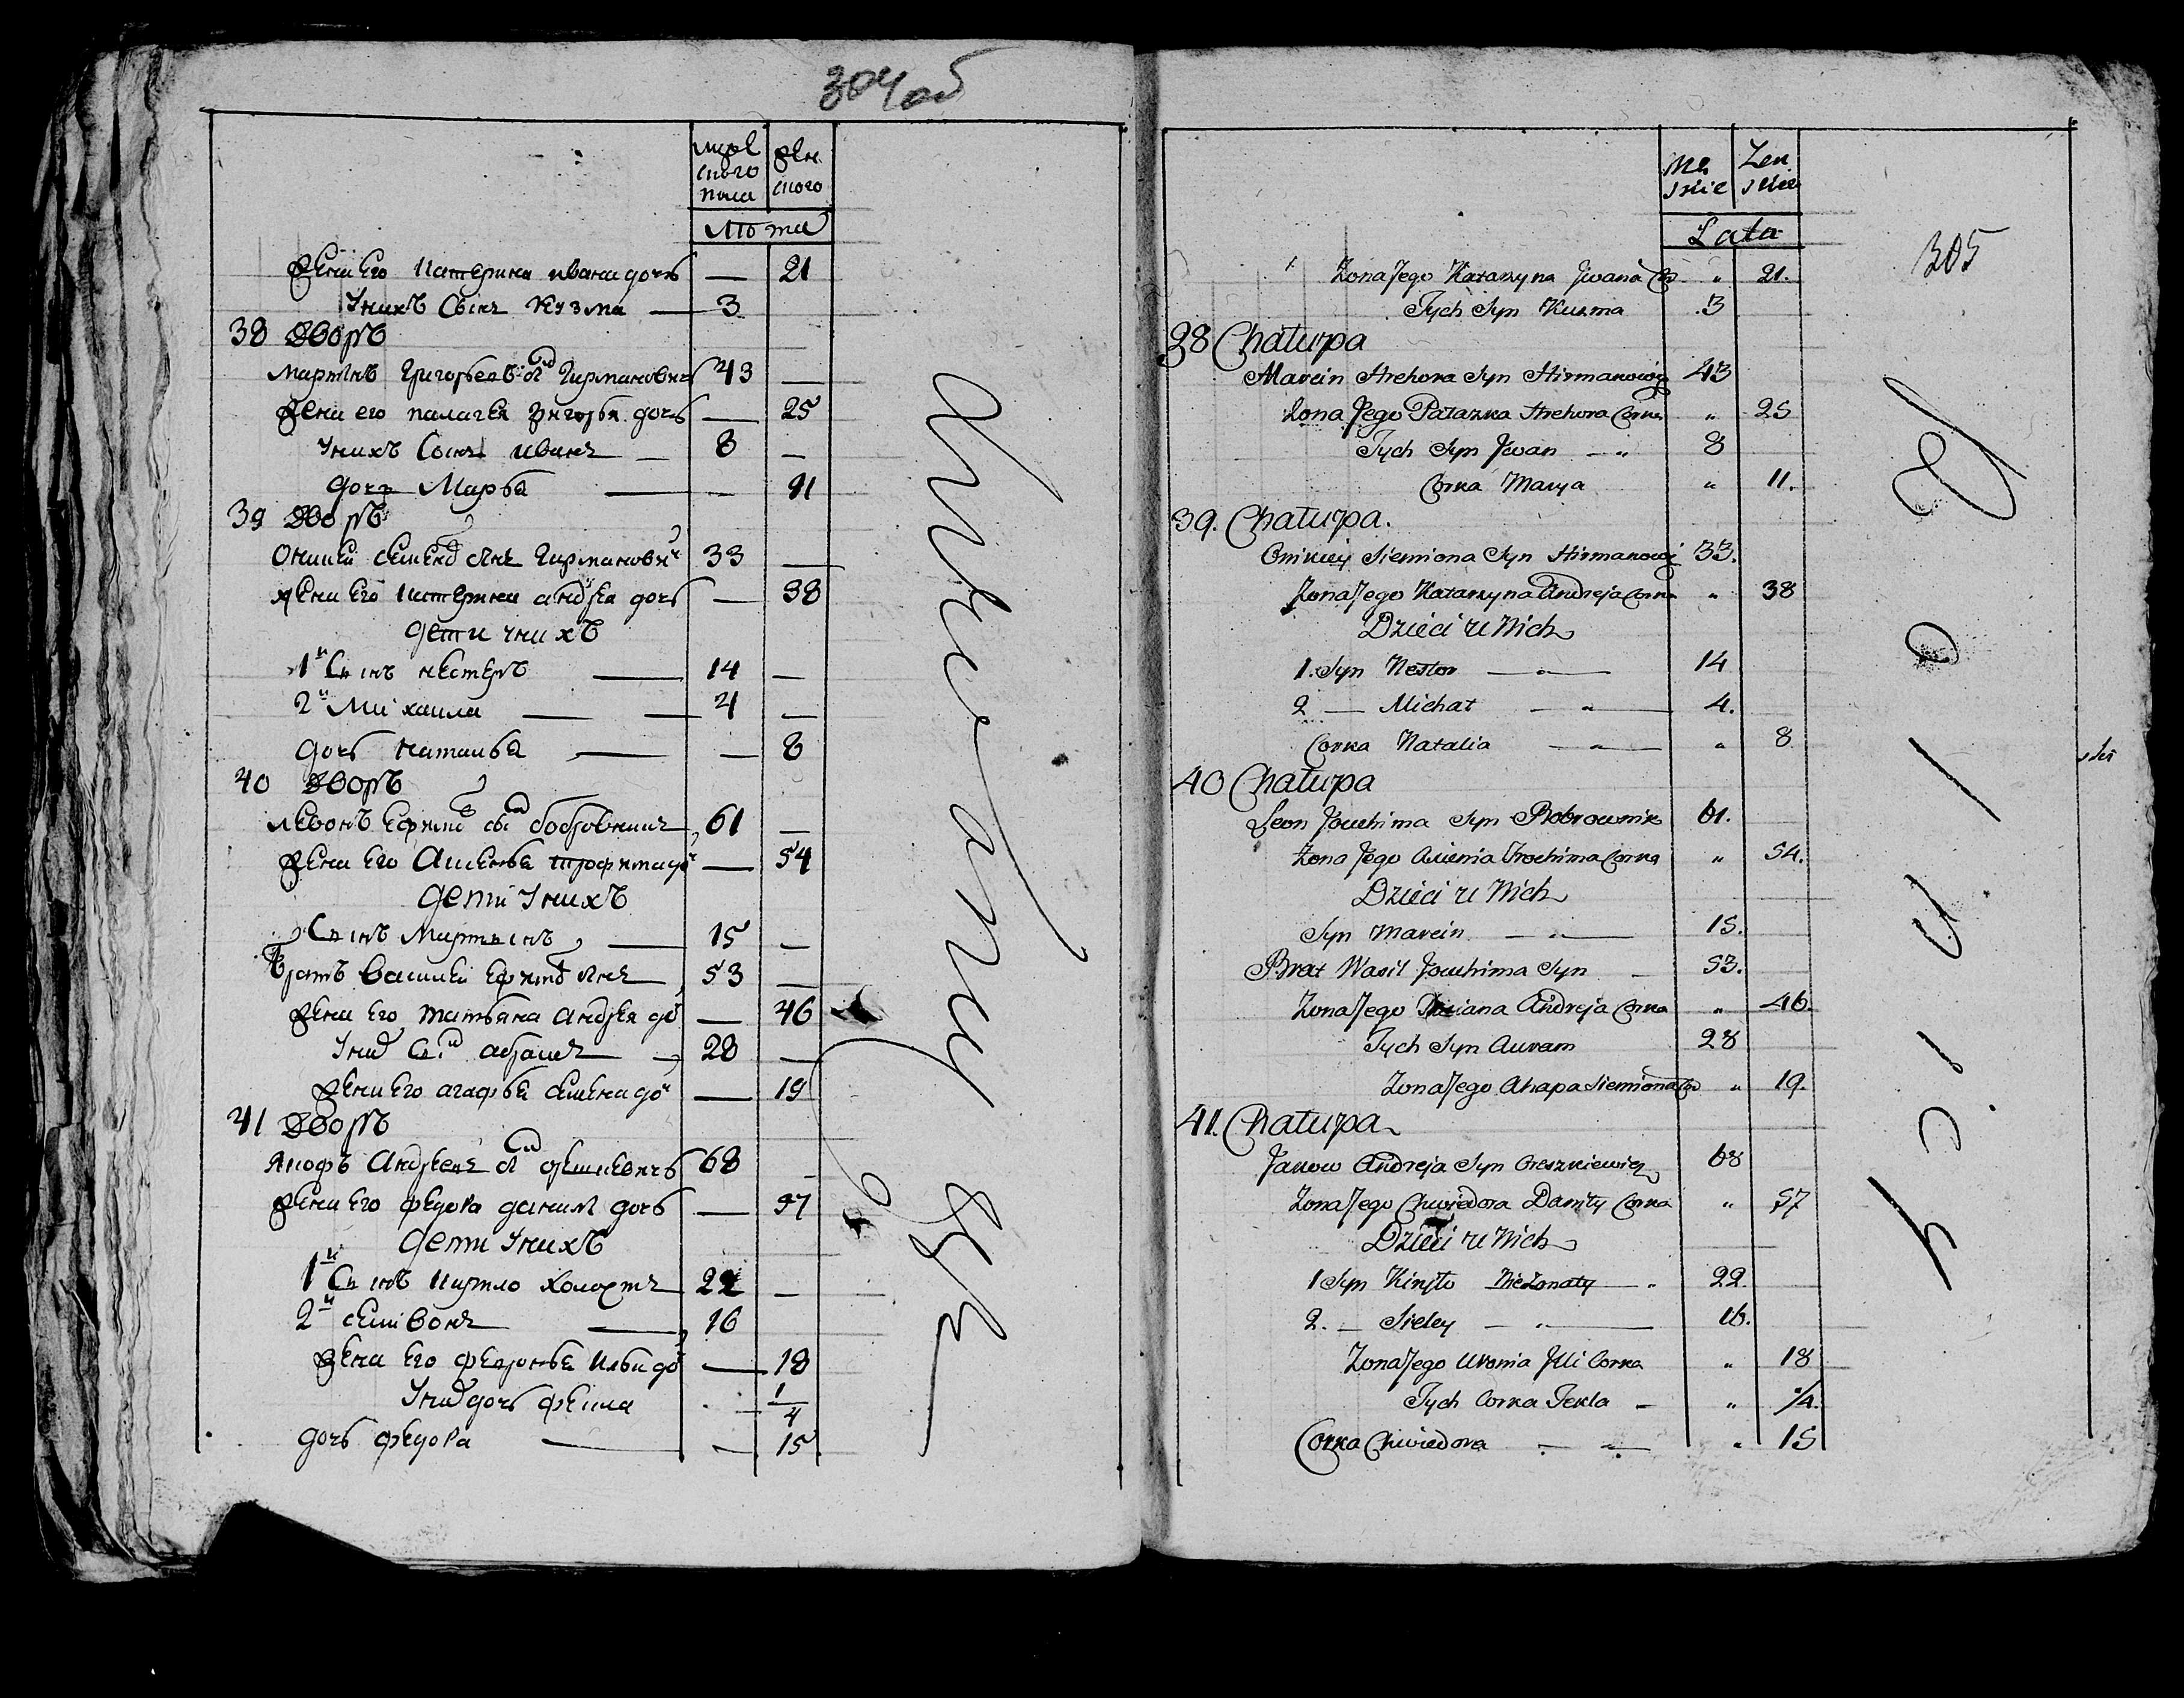 304 об
мужеского пола
женского
Лѣта
жена Его Катерина ивана дочь — 21
У нихъ Сынъ Кузма — 3
38 Дворъ
Мартинъ Григорьевъ Сынъ Гирмановичъ 43 —
жена его палагея григорья дочь — 25
У нихъ Сынъ иванъ — 8 —
дочь Марья — — 11
39 Дворъ
Оникей семенов Сынъ Гирманович 33 —
жена Его Катерина андрея дочь — 38
дети у нихъ
1й Сынъ нестеръ — 14 —
2й Михаила — — 4 —
дочь наталья — — 8
40 Дворъ
Левонъ Ефимов Сынъ бобровникъ 61 —
жена Его Аксенья трофима до — 54
дети У нихъ
Сынъ Мартынъ — 15 —
братъ василей Ефимов Сынъ 53 —
жена Его татьяна андрея до — 46
У них Сынъ абрамъ — 28 —
жена Его агафья семена до — 19
41 Дворъ
Якофъ Андреевъ Сынъ орешкевичъ 68 —
жена Его федора данила дочь — 57
дети У нихъ
1й Сынъ Кирило холостъ 22 —
2й селивонъ — 16
жена Его февронья ильи до — 18
У них дочь фекла — 1/4
дочь федора — — 15
305
Męskie
Żenskie
Lata
Zona Jego Katarzyna Jwana Cor „ 21.
Tych Syn Kuzma 3
38 Chałupa
Marcin Hrehora Syn Hirmanowicz 43
Zona Jego Pałazka Hrehora Corka „ 25
Tych Syn Jwan — „ 8
Corka Marya „ 11.
39. Chałupa.
Onikiey Siemiona Syn Hirmanowicz 33.
Zona Jego Katarzyna Andreja Corka „ 38
Dzieci u Nich
1. Syn Nestor — „ — 14
2 — Michał — „ — 4.
Corka Natalia — „ — „ 8
40 Chałupa
Leon Jouchima Syn Bobrownik 61.
Zona Jego Auienia Trochima Corka „ 54.
Dzieci u Nich
Syn Marcin — „ — 15.
Brat Wasil Jouchima Syn — 53.
Zona Jego Taciana Andreja Corka „ 46.
Tych Syn Auram 28
Zona Jego Ahapa Siemiona Cor „ 19.
41. Chałupa
Jakow Andreja Syn Oreszkiewicz 68
Zona Jego Chwiedora Daniły Corka „ 57
Dzieci u Nich
1 Syn Kiryło Nieżonaty — „ 22.
2. — — „ — 16.
Zona Jego Jlli Corka „ 18
Tych Corka Tekla — „ 1/4.
Corka Chwiedora — „ — „ 15